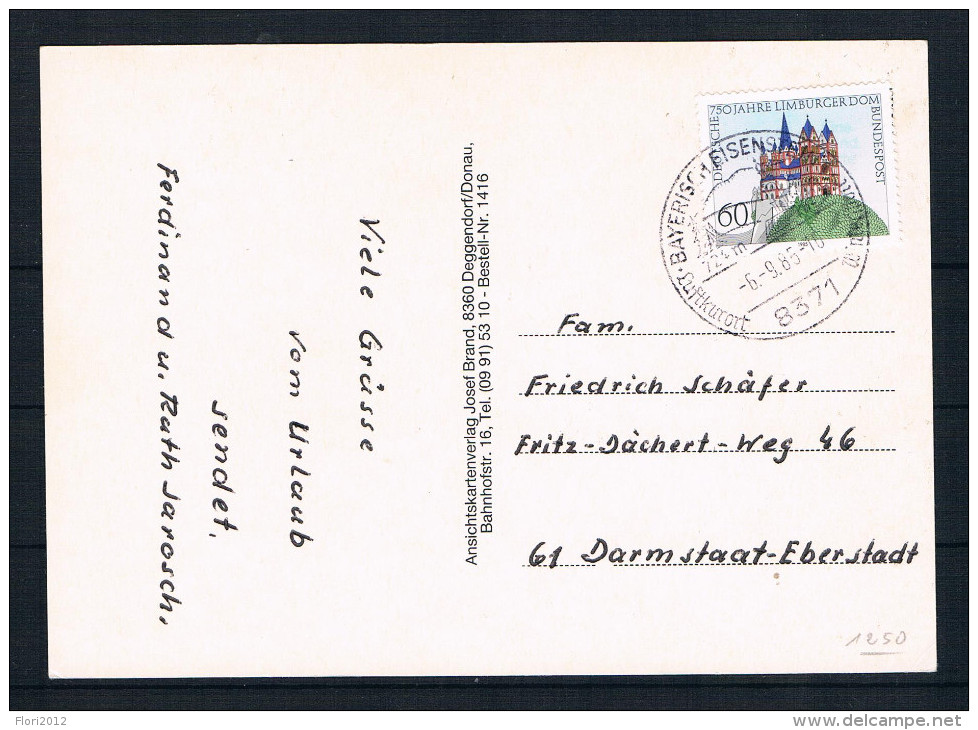 Viele Grüsse
vom Urlaub
sendet.
Ferdinand u. Ruth Jarosch.
Ansichtskartenverlag Josef Brand, 8360 Deggendorf/Donau,
Bahnhofstr. 16, Tel. (09 91) 53 10 - Bestell-Nr. 1416
750 JAHRE LIMBURGER DOM
DEUTSCHE BUNDESPOST
60
BAYERISCH EISENSTEIN
724 m
-6.-9.85-
Luftkurort
8371
Fam.
Friedrich Schäfer
Fritz-Dächert-Weg 46
61 Darmstaat-Eberstadt
1250
Flori2012
www.delcampe.net